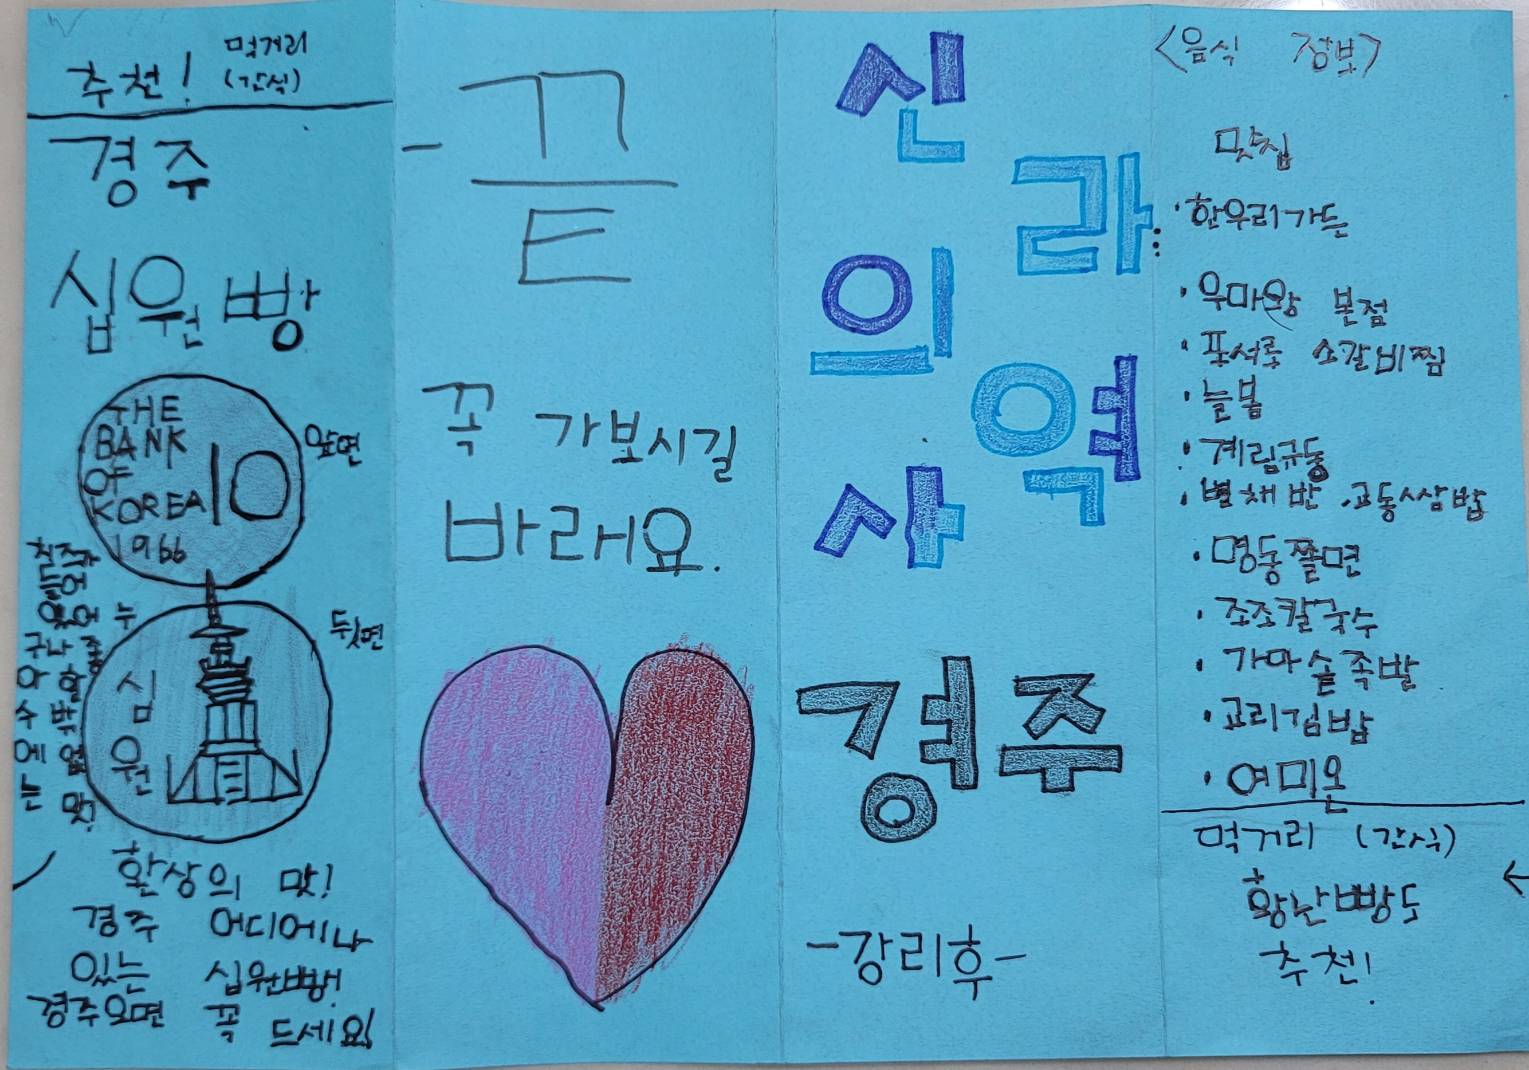 추천! 먹거리
(간식)
경주
십원빵
THE
BANK
OF
KOREA
1966
10
앞면
뒷면
십
원
치즈가
들어
있어 누
구나 좋
아 할
수 밖
에 없
는 맛!
환상의 맛!
경주 어디에나
있는 십원빵!
경주오면 꼭 드세요!
- 끝
꼭 가보시길
바래요.
신라
의 역
사
경주
-강리후-
<음식 정보>
맛집
·한우리가든
·우마왕 본점
·포서루 소갈비찜
·늘봄
·계림규동
·별채반 .교동쌈밥
·명동쫄면
·조조칼국수
·가마솥족발
·교리김밥
·여미온
먹거리 (간식)
황남빵도
추천!